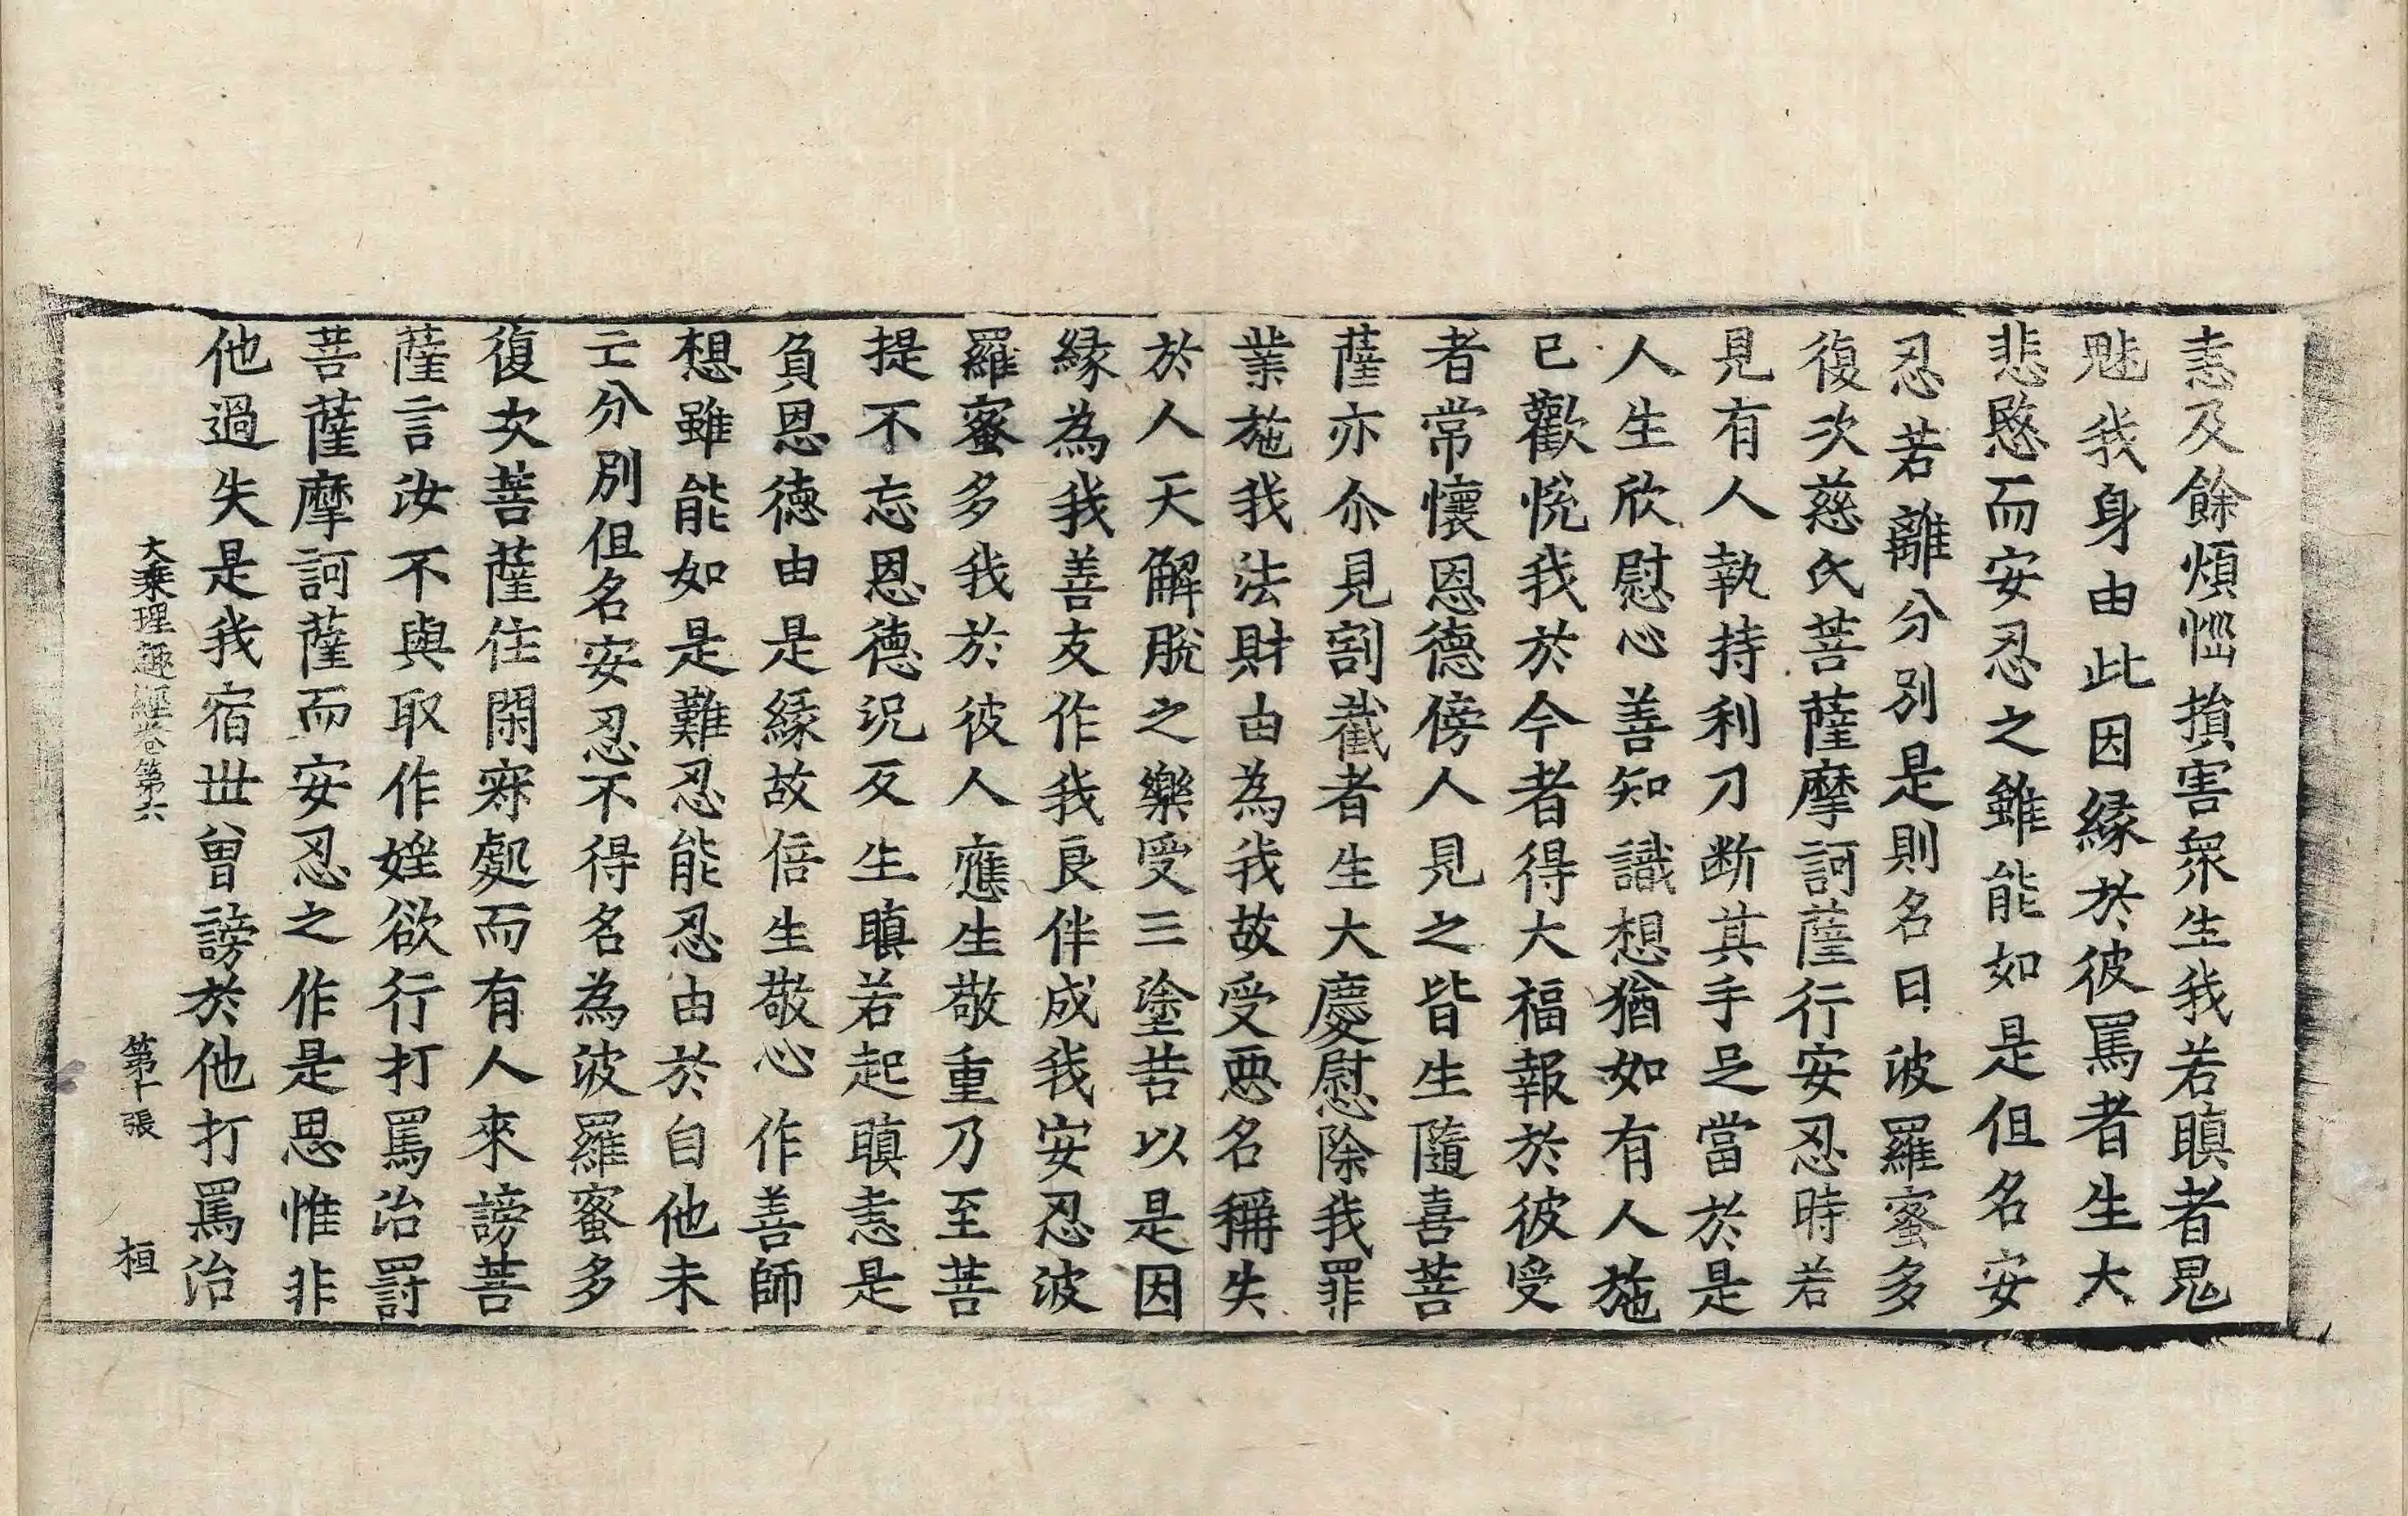 恚及餘煩惱損害衆生我若瞋者鬼
魅我身由此因縁於彼罵者生大
悲愍而安忍之雖能如是但名安
忍若離分別是則名曰波羅蜜多
復次慈氏菩薩摩訶薩行安忍時若
見有人執持利刀断其手足當於是
人生欣慰心善知識想猶如有人施
已歡悅我於今者得大福報於彼受
者常懷恩德傍人見之皆生隨喜菩
薩亦尒見割截者生大慶慰除我罪
業施我法財由為我故受惡名稱失
於人天解脫之樂受三塗苦以是因
縁為我善友作我良伴成我安忍波
羅蜜多我於彼人應生敬重乃至菩
提不忘恩德況反生瞋若起瞋恚是
負恩德由是縁故倍生敬心作善師
想雖能如是難忍能忍由於自他未
亡分別但名安忍不得名為波羅蜜多
復次菩薩住閑寂處而有人來謗菩
薩言汝不與取作婬欲行打罵治罸
菩薩摩訶薩而安忍之作是思惟非
他過失是我宿世曾謗於他打罵治
大乗理趣經卷第六 第十張 桓